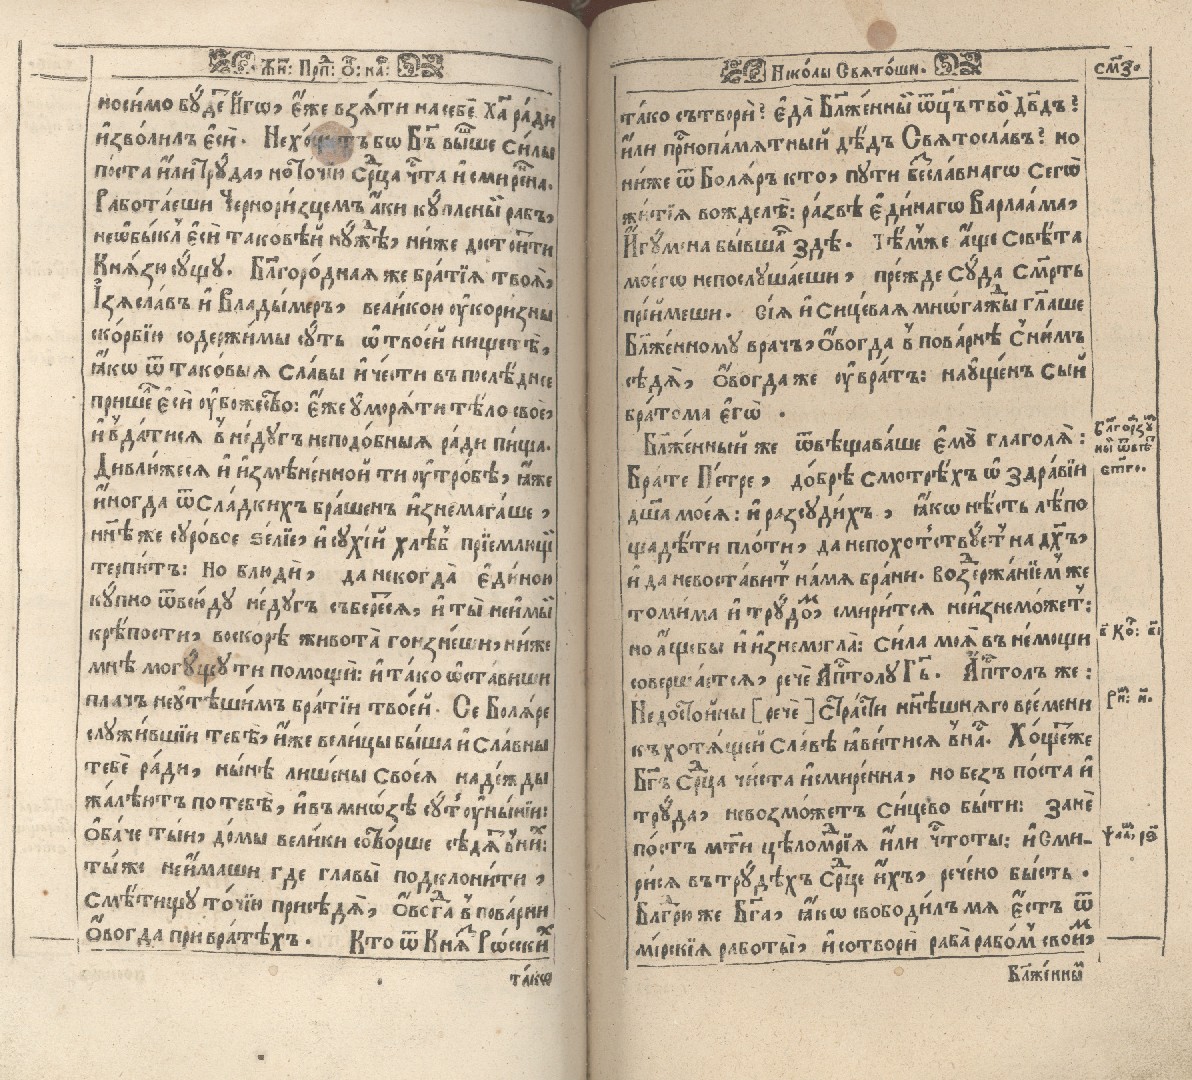 Жи҃: Прⷣп: Ѻ҃: на́ш:
носи́мо бꙋ́де и҆́гѡ, є҆́же взѧ́ти на себѐ Хⷭ҇а ра́ди
и҆зво́лилъ є҆сѝ. Не хо́щетъ бѡ Бг҃ъ вы́ше си́лы
поста̀ и҆лѝ трꙋда̀, но то́чїю срⷣца чⷭ҇та и҆ смире́нна.
Рабо́таеши Черно́ризцемъ а҆́ки кꙋ́пленый ра́бъ,
не ѡ҆бы́клъ є҆сѝ таково́й нꙋ́ждѣ, ни́же досто́итъ ти
Кнѧ́зю сꙋ́щꙋ. Бл҃горо́днаѧ же бра́тїѧ твоѧ̀,
І҆зѧсла́въ и҆ Влады́меръ, вели́кою ᲂу҆кори́зны
ско́рбїю содержи́мы сꙋ́ть ѡ҆ твое́й нищетѣ̀,
ꙗ҆́кѡ ѿ таковы́ѧ сла́вы и҆ че́сти въ послѣ́днее
прише́лъ є҆сѝ ᲂу҆бо́жество: є҆́же ᲂу҆морѧ́ти тѣ́ло своѐ,
и҆ вда́тисѧ в не́дꙋгъ неподо́бныѧ ра́ди пи́ща.
Дивлю́жесѧ и҆ и҆змѣне́нной ти ᲂу҆тро́бѣ, ꙗ҆́же
и҆ногда̀ ѿ сла́дкихъ бра́шенъ и҆знемага́ше,
нн҃ѣ же сꙋро́вое ѕе́лїе, и҆ сꙋхі́й хлѣ́бъ прїе́млющи
терпи́тъ: Но блюдѝ, да некогда̀ є҆ди́ною
кꙋ́пно ѿвсю́дꙋ не́дꙋгъ събере́тсѧ, и҆ ты̀ неимы́й
крѣ́пости, вско́рѣ живота̀ гонзне́ши, ни́же
мнѣ̀ могꙋ́щꙋ ти помощѝ: и҆ та́ко ѡ҆ста́виши
пла́чъ неꙋтѣши́мъ бра́тїи твое́й. Се Болѧ́ре
слꙋжи́вшїи тебѣ̀, и҆́же вели́цы бы́ша и҆ сла́вны
тебѐ ра́ди, ны́нѣ лише́ны своеѧ̀ наде́жды
жалѣ́ютъ по тебѣ̀, и҆ въ мно́зѣ сꙋ́ть ᲂу҆ны́нїи:
Ѻ҆ба́че ты́и, до́мы вели́ки сотво́рше сѣдѧ́тъ в ни́хъ:
ты́ же неи҆́маши где главы̀ подклони́ти,
смѣ́тищꙋ то́чїю присѣдѧ̀, ѻ҆вогда̀ в пова́рни
ѻ҆вогда̀ при вратѣ́хъ. Кто ѿ Кнѧ́зь Рѡ́сскихъ
та́кѡ
Нїко́лы Свѧто́ши.
смз҃.
та́ко сътворѝ? є҆да̀ Бл҃же́нный ѿц҃ъ тво́й Дв҃дъ?
и҆лѝ прⷭ҇нопа́мѧтный дѣ́дъ Свѧтосла́въ? но
ни́же ѿ Болѧ́ръ кто, пꙋтѝ бесла́внагѡ сегѡ̀
житїѧ̀ вожделѣ̀: ра́звѣ є҆ди́нагѡ Варлаа́ма,
И҆гꙋ́мена бы́вша здѣ̀. Тѣ́мже а҆́ще совѣ́та
моегѡ̀ непослꙋ́шаеши, пре́жде сꙋда̀ сме́рть
прїи́меши. Сїѧ̀ и҆ сицева́ѧ мнѡ́гажды гл҃аше
Бл҃же́нномꙋ вра́чъ, ѻ҆вогда̀ в пова́рнѣ с ни́мъ
сѣдѧ̀, ѻ҆вогда же ᲂу҆ вра́тъ: наꙋще́нъ сы́й
бра́тома є҆гѡ̀.
Бл҃же́нный же ѿвѣщава́ше є҆мꙋ̀ глаго́лѧ:
Бра́те Пе́тре, до́брѣ смотрѣ́хъ ѡ҆ здра́вїи
дш҃а моеѧ̀: и҆ разсꙋди́хъ, ꙗ҆́кѡ нѣ́сть лѣ́по
щадѣ́ти пло́ти, да непохо́тствꙋетъ на дх҃ъ,
и҆ да невоста́витъ на мѧ̀ бра́ни. Воздержа́нїемъ же
томи́ма и҆ трꙋдо́мъ, смири́тсѧ неи҆знемо́жетъ:
но а҆́щебы и҆ и҆знемогла̀: си́ла моѧ̀ въ не́мощи
соверша́етсѧ, речѐ Апⷭ҇толꙋ Гдⷭ҇ь. Апⷭ҇толъ же:
Недосто́йны [речѐ] стра́сти нн҃ѣшнѧго вре́мени
къ хотѧ́щей сла́вѣ ꙗ҆ви́тисѧ в на́съ. Хо́щет же
Бг҃ъ срⷣца чи́ста и҆ смире́нна, но безъ по́ста и҆
трꙋда̀, невозмо́жетъ си́цево бы́ти: занѐ
по́стъ мт҃и цѣломⷣрїѧ и҆лѝ чⷭ҇тоты̀: и҆ Сми-
ри́сѧ въ трꙋдѣ́хъ срⷣце и҆́хъ, рече́но бы́сть.
Бл҃годарю̀ же Бг҃а, ꙗ҆́кѡ свободи́лъ мѧ̀ є҆́стъ ѿ
мі́рскїѧ рабо́ты, и҆ сотворѝ раба̀ рабо́мъ свои́мъ
Бл҃горазꙋ́мный ѿвѣ́тъ
є҆го̀.
в҃ Ко: в҃і
Ри́м: и҃.
ѱал: рѕ҃
Бл҃же́нный